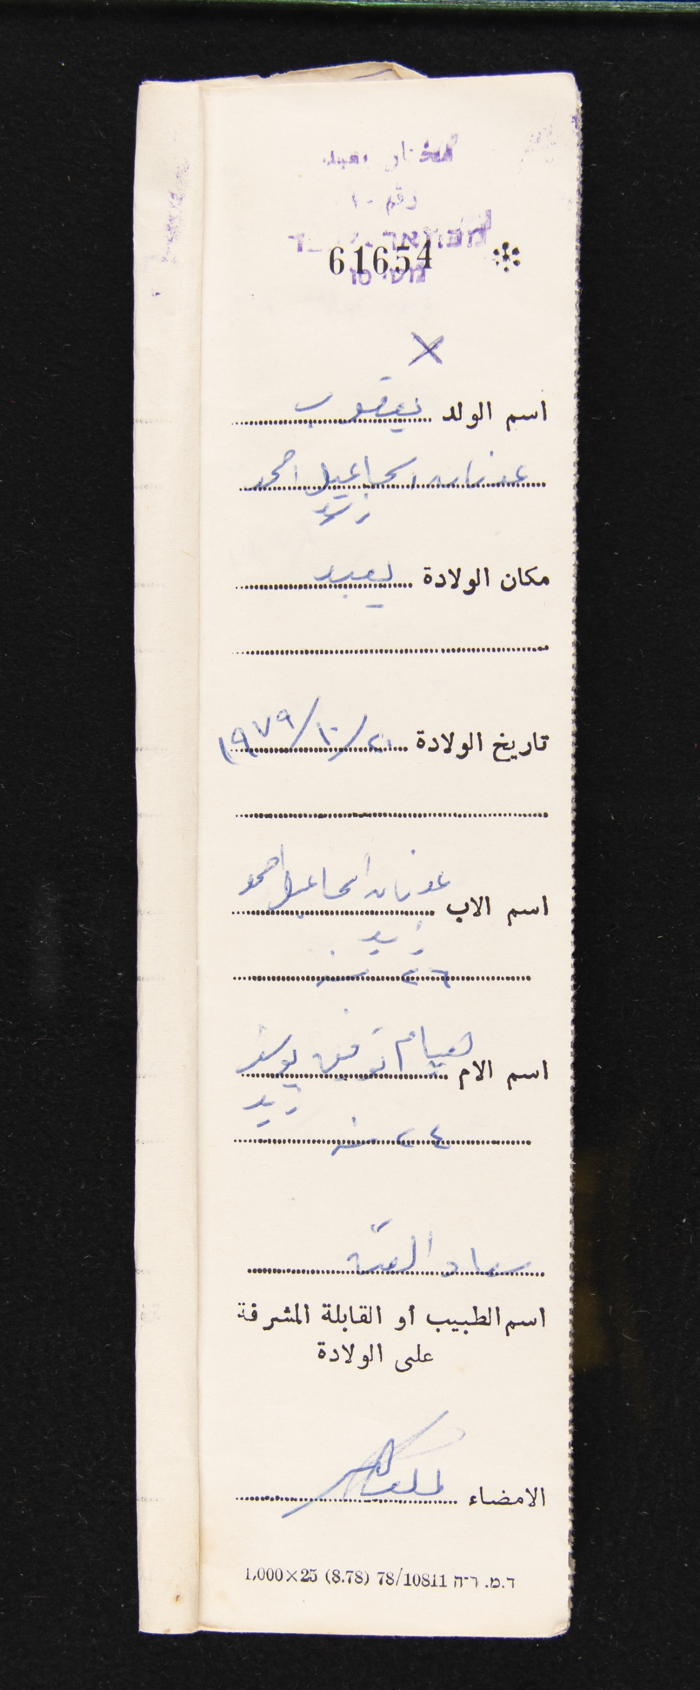 مختار يعبد
رقم ١٠
מוכתאר
61654
מס' 10
اسم الولد يعقوب
عدنان اسماعيل احمد
زيد
مكان الولادة يعبد
تاريخ الولادة ٢١/١٠/١٩٧٩
اسم الاب عدنان اسماعيل احمد
زيد
٢٦ سنة
اسم الام هيام توفيق يوسف
زيد
٢٤ سنة
سعاد
اسم الطبيب أو القابلة المشرفة
على الولادة
الامضاء
ד.מ. ר־ה 78/10811 (8.78) 1,000×25